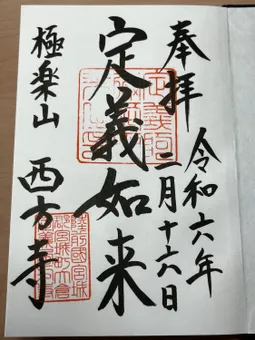 奉拝
令和六年
二月十六日
定義如来
極楽山
西方寺